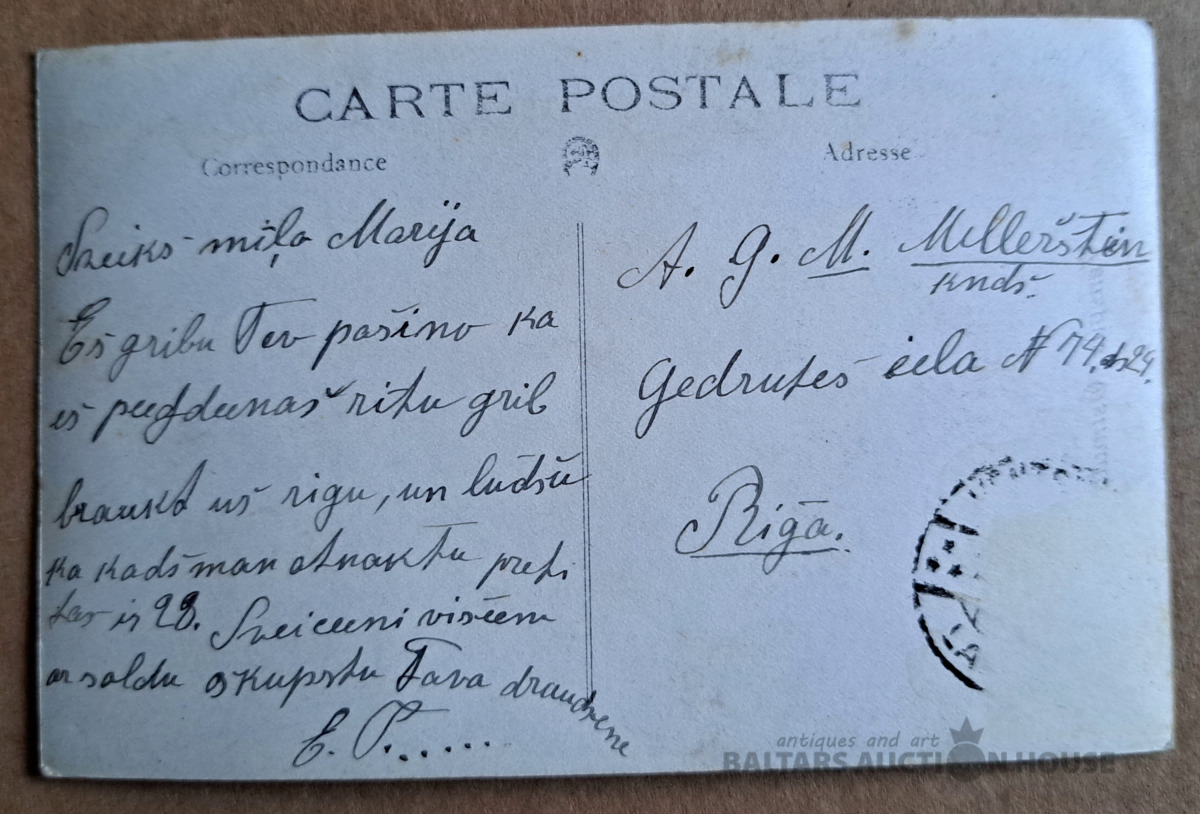 CARTE POSTALE
Correspondance
Adresse
Sveiks miļa Marija
Eš gribu Tev pašino ka
eš ritu grib
braukt uš rigu, un ludšu
ka kadš man atnaktu preti
tas ir 28. Sveiceeni višeem
ar saldu skupstu Tava draudsene
E. P......
A. G. M. Millerštein
kndš.
Gedrutes iela N 74. dz 24.
Rigā.
antiques and art
BALTARS AUCTION HOUSE